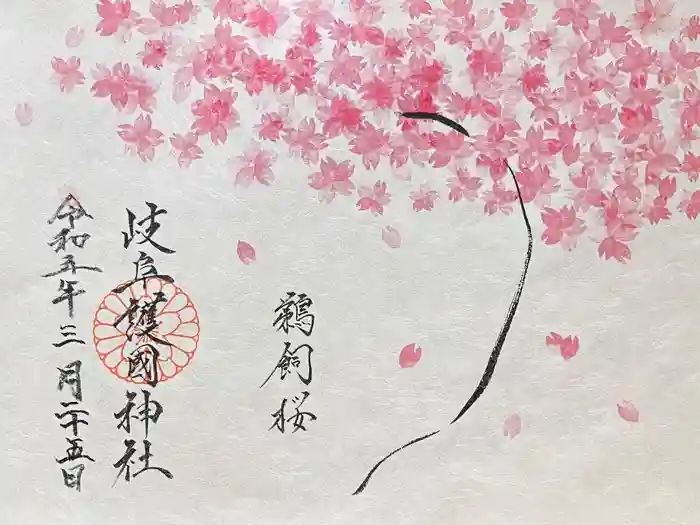 鵜飼桜
岐阜護國神社
令和五年三月二十五日